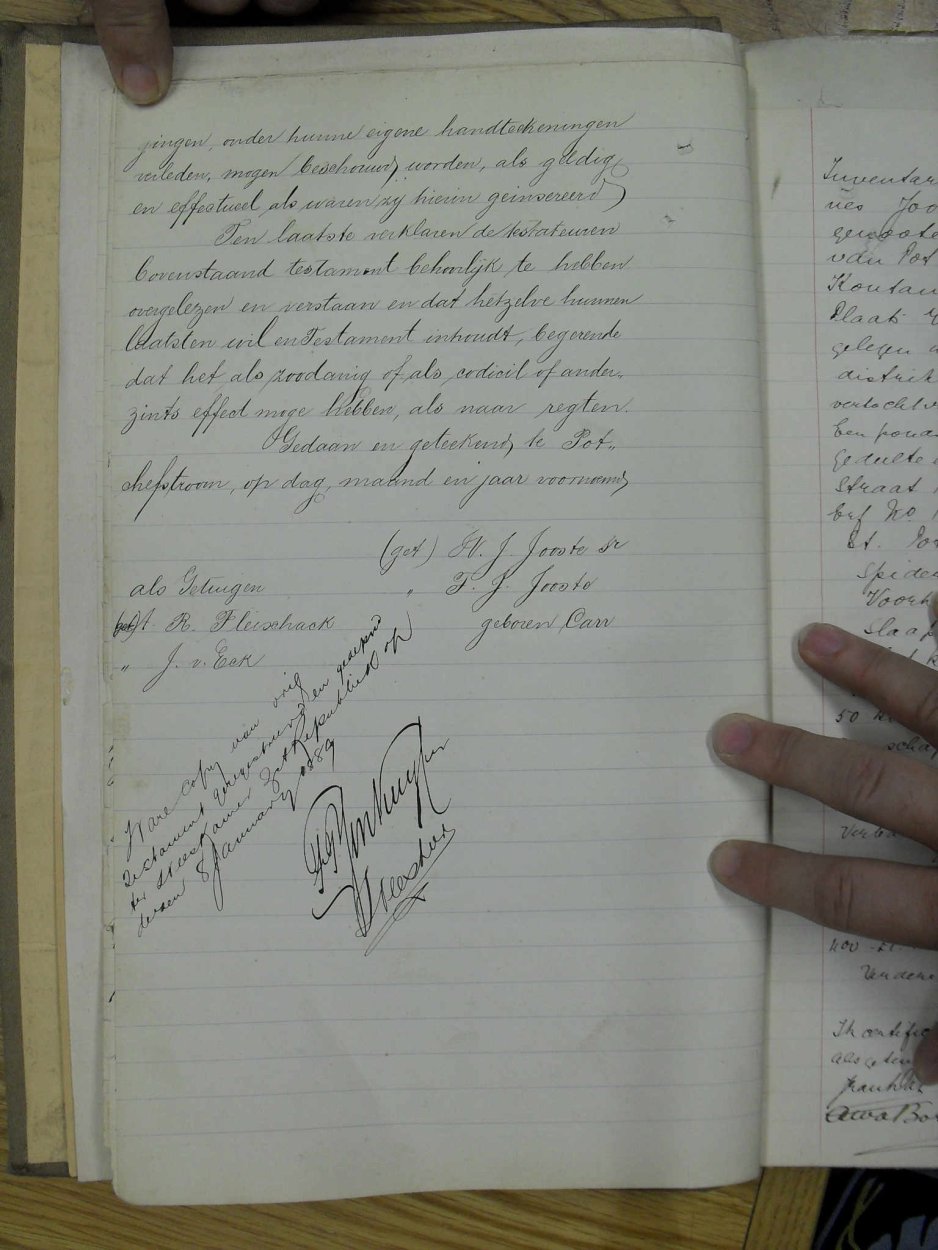 jingen, onder hunne eigene handteekeningen
verleden, mogen beschouwd worden, als geldig
en effectueel als waren zy hierin geinsereerd
Ten laatste verklaren de testateuren
bovenstaand testament behoorlijk te hebben
overgelezen en verstaan en dat hetzelve hunnen
laatsten wil en Testament inhoudt, begerende
dat het als zoodanig of als codicil of ander„
zints effect moge hebben, als naar regten.
Gedaan en geteekend, te Pot„
chefstroom, op dag, maand en jaar voornoemd
(get) J. J. Jooste Sr
als Getuigen „ F. J. Jooste
(get) A. R. Fleischack geboren Carr
„ J. v. Eck
Ware Copy van orig
Testament geregistreerd en gedeponeerd
ter Weeskamer Z A Republiek op
dezen 8 January 1889
Weeshee
Inventar
nes Joo
genoote
van Pot
Kontan
Plaats
gelegen
distrik
verkocht
Een pond
gedeelte
Straat
Erf No
Dt. Pot
Spider
Voorh
Slaap
50
scha
Verba
nov
Ik certific
als getui